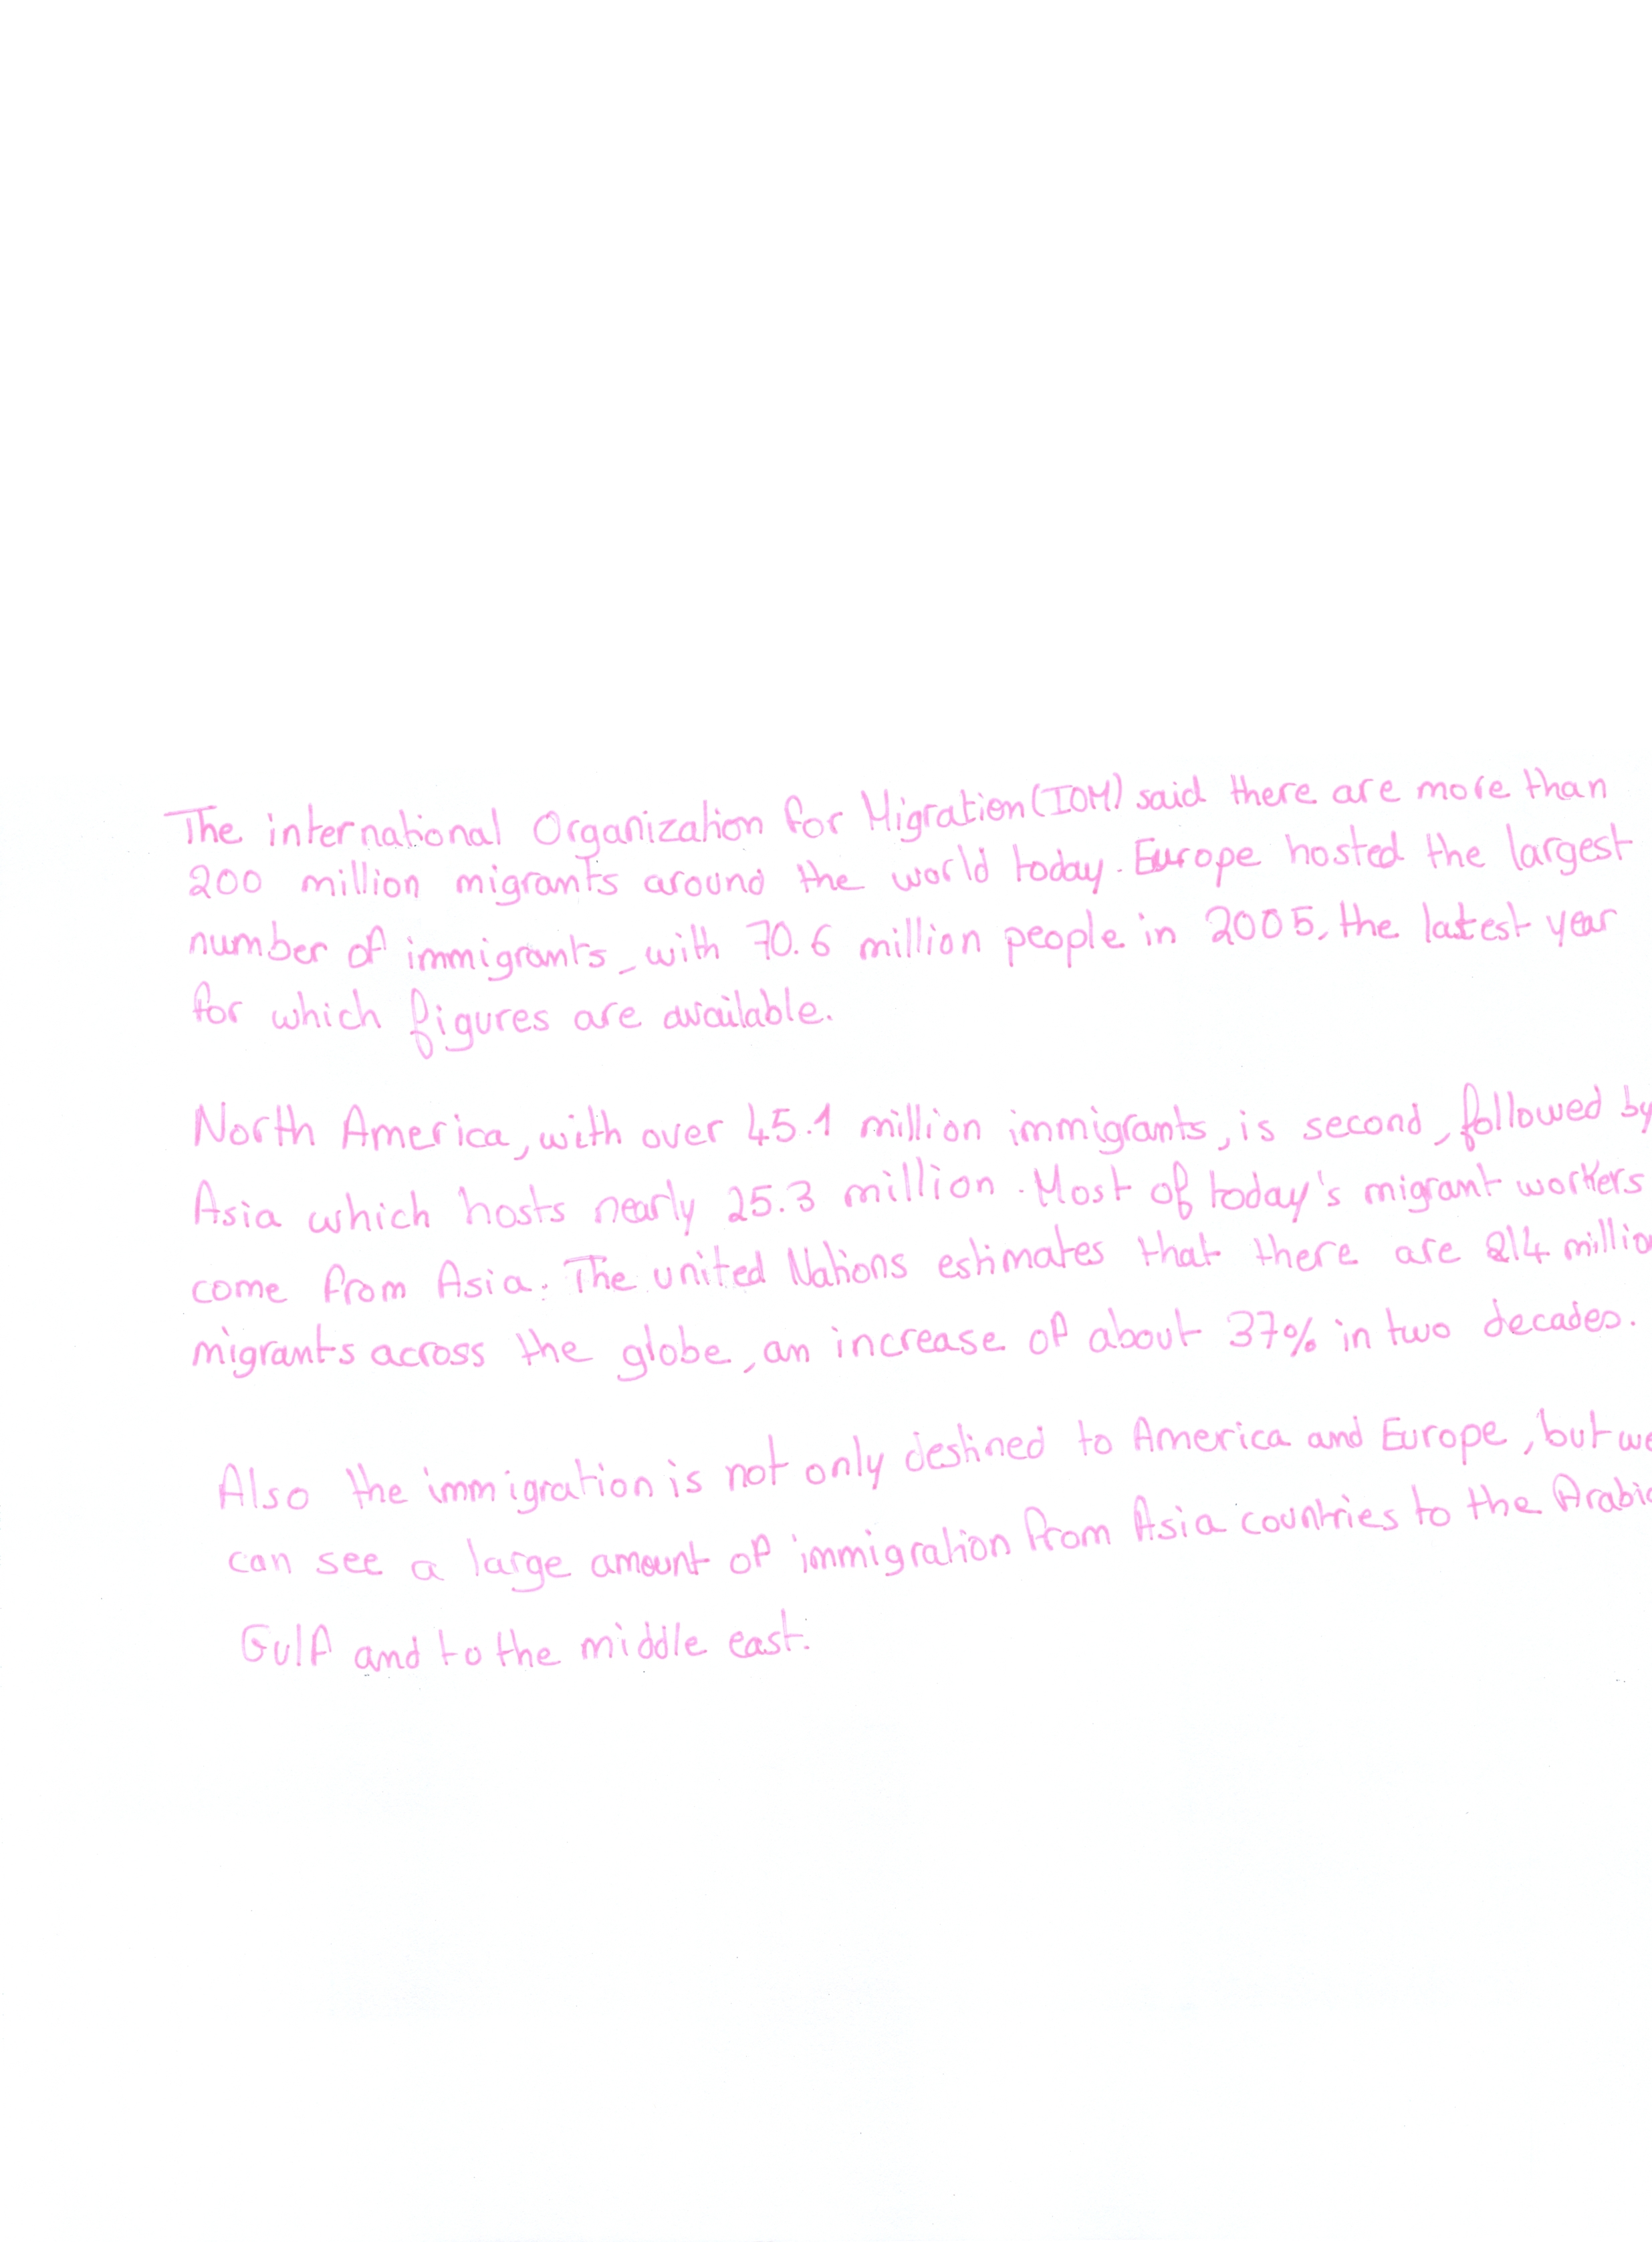 The international Organization for Migration (IOM) said there are more than
200 million migrants around the world today. Europe hosted the largest
number of immigrants, with 70.6 million people in 2005, the latest year
for which figures are available.
North America, with over 45.1 million immigrants, is second, followed by
Asia which hosts nearly 25.3 million. Most of today's migrant workers
come from Asia. The united Nations estimates that there are 214 millio
migrants across the globe, an increase of about 37% in two decades.
Also the immigration is not only destined to America and Europe, but we
can see a large amount of immigration from Asia countries to the Arabic
Gulf and to the middle east.